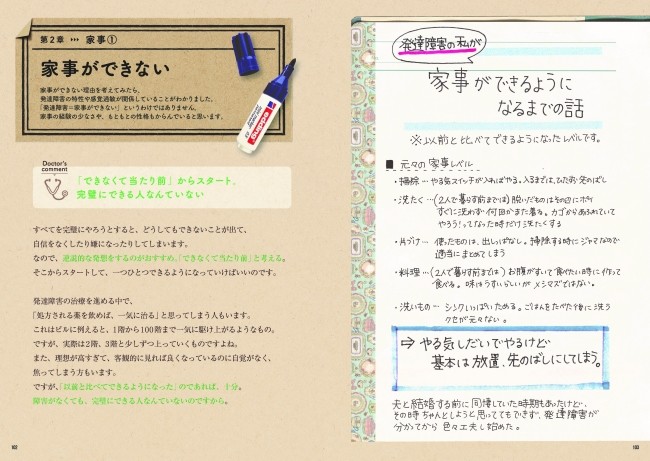 第2章 ▸▸▸ 家事①
家事ができない
家事ができない理由を考えてみたら、
発達障害の特性や感覚過敏が関係していることがわかりました。
「発達障害＝家事ができない」というわけではありません。
家事の経験の少なさや、もともとの性格もからんでいると思います。
edding
Doctor's
comment
「できなくて当たり前」からスタート。
完璧にできる人なんていない
すべてを完璧にやろうとすると、どうしてもできないことが出て、
自信をなくしたり嫌になったりしてしまいます。
なので、逆説的な発想をするのがおすすめ。「できなくて当たり前」と考える。
そこからスタートして、一つひとつできるようになっていけばいいのです。
発達障害の治療を進める中で、
「処方される薬を飲めば、一気に治る」と思ってしまう人もいます。
これはビルに例えると、1階から100階まで一気に駆け上がるようなもの。
ですが、実際は2階、3階と少しずつ上っていくものですよね。
また、理想が高すぎて、客観的に見れば良くなっているのに自覚がなく、
焦ってしまう方もいます。
ですが、「以前と比べてできるようになった」のであれば、十分。
障害がなくても、完璧にできる人なんていないのですから。
102
発達障害の私が
家事ができるように
なるまでの話
※以前と比べてできるようになったレベルです。
■ 元々の家事レベル
・掃除…やる気スイッチが入ればやる。入るまでは、ひたすら先のばし
・洗たく…(2人で暮らす前までは)脱いだものはその辺にポイ
すぐに洗わず何回かまた着る。カゴからあふれていて
やろう!ってなった時だけ洗たくする
・片づけ…使ったものは、出しっぱなし。掃除する時にジャマなので
適当にまとめてしまう
・料理…(2人で暮らす前までは)お腹がすいて食べたい時に作って
食べる。味はうすいらしいがメシマズではない。
・洗いもの…シンクいっぱいためる。ごはんをたべた後に洗う
クセが元々ない。
→ やる気しだいでやるけど
基本は放置、先のばしにしてしまう。
夫と結婚する前に同棲していた時期もあったけど、
その時ちゃんとしようと思ってもできず、発達障害が
分かってから色々工夫し始めた。
103